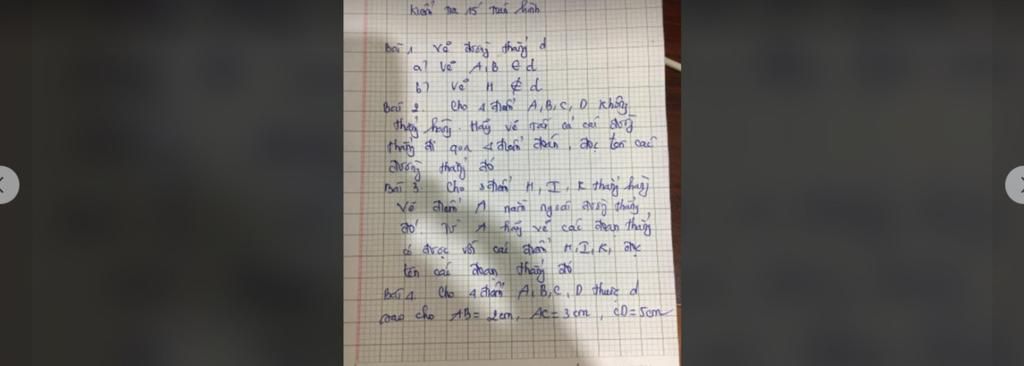 Kiểm tra 15' Toán hình
Bài 1 Vẽ đường thẳng d
a) Vẽ A, B ∈ d
b) Vẽ M ∉ d
Bài 2. Cho 4 điểm A, B, C, D không
thẳng hàng. Hãy vẽ tất cả các đường
thẳng đi qua 4 điểm đoán, đọc tên các
đường thẳng đó
Bài 3. Cho 3 điểm H, I, K thẳng hàng
Vẽ điểm A nằm ngoài đường thẳng
đó. Từ A hãy vẽ các đoạn thẳng
có được với các điểm H, I, K, đọc
tên các đoạn thẳng đó
Bài 4. Cho 4 điểm A, B, C, D thuộc d
sao cho AB = 2cm, AC = 3cm, CD = 5cm